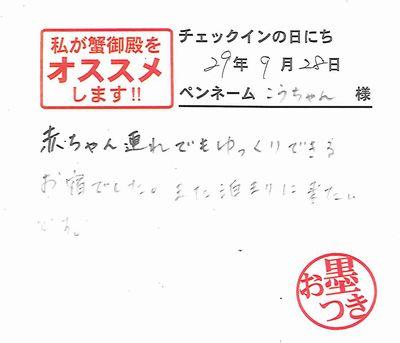 私が蟹御殿を
オススメ
します!!
チェックインの日にち
29年9月28日
ペンネーム こうちゃん 様
赤ちゃん連れでもゆっくりできる
お宿でした。また泊まりに来たい
です。
お墨つき